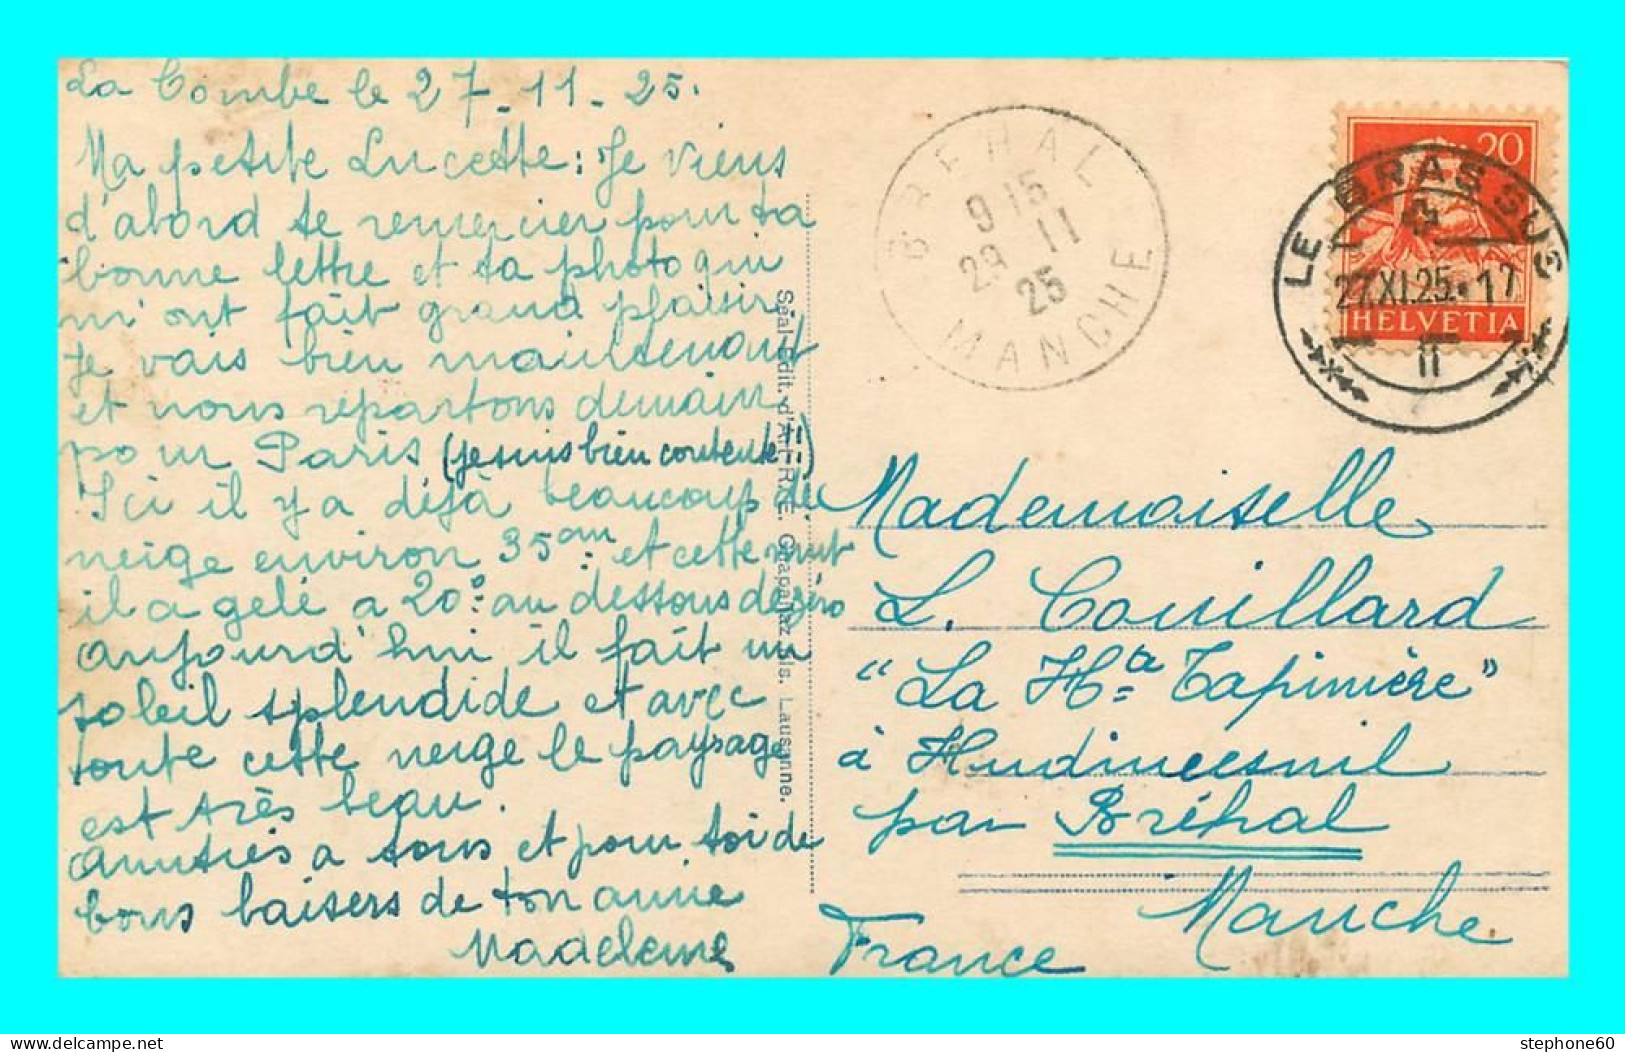 La Combe le 27-11-25.
Ma petite Lucette: Je viens
d'abord te remercier pour ta
bonne lettre et ta photo qui
m'ont fait grand plaisir
Je vais bien maintenant
et nous repartons demain
pour Paris (je suis bien contente!!)
Ici il y a déjà beaucoup de
neige environ 35cm et cette nuit
il a gelé a 20° au dessous de zéro
aujourd'hui il fait un
soleil splendide et avec
toute cette neige le paysage
est très beau.
Amitiés a tous et pour toi de
bons baisers de ton amie
Madeleine
Séal-Edit. d'Art
Lausanne.
BREHAL
9 15
29 11
25
MANCHE
20
HELVETIA
LE BRASSUS
27.XI.25.-17
II
Mademoiselle
L. Couillard
"La Hte Tapinière"
à Hudimesnil
par Bréhal
Manche
France
stephone60